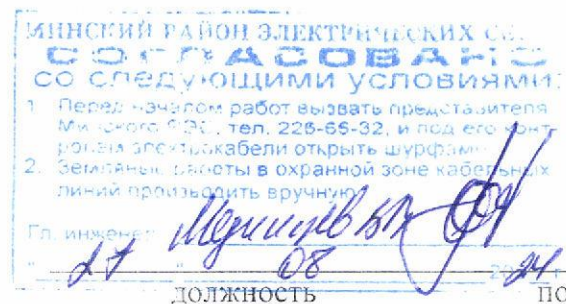 МИНСКИЙ РАЙОН ЭЛЕКТРИЧЕСКИХ
СОГЛАСОВАНО
СО СЛЕДУЮЩИМИ УСЛОВИЯМИ:
1. Перед началом работ вызвать представителя
Минского РЭС, тел. 226-65-32, и под его конт-
ролем электрокабели открыть шурфами
2. Земляные работы в охранной зоне кабельных
линий производить вручную
Гл. инженер
"27" 08 2024 г.
должность по